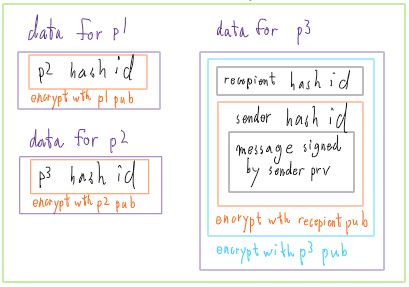 data for p1
p2 hash id
encrypt with p1 pub
data for p2
p3 hash id
encrypt with p2 pub
data for p3
recepient hash id
sender hash id
message signed
by sender prv
encrypt with recepient pub
encrypt with p3 pub